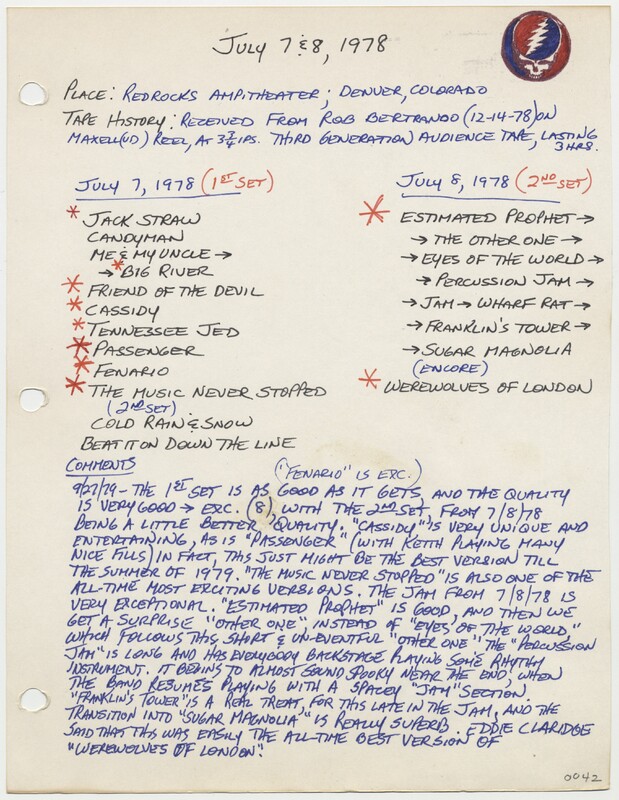 JULY 7 & 8, 1978
PLACE: REDROCKS AMPITHEATER; DENVER, COLORADO
TAPE HISTORY: RECEIVED FROM ROB BERTRANDO (12-14-78) ON
MAXELL (UD) REEL, AT 3 3/4 IPS. THIRD GENERATION AUDIENCE TAPE, LASTING
3 HRS.
JULY 7, 1978 (1ST SET)
* JACK STRAW
CANDYMAN
ME & MY UNCLE →
→ * BIG RIVER
* FRIEND OF THE DEVIL
* CASSIDY
* TENNESSEE JED
* PASSENGER
* FENARIO
* THE MUSIC NEVER STOPPED
(2ND SET)
COLD RAIN & SNOW
BEAT IT ON DOWN THE LINE
JULY 8, 1978 (2ND SET)
* ESTIMATED PROPHET →
→ THE OTHER ONE →
→ EYES OF THE WORLD →
→ PERCUSSION JAM →
→ JAM → WHARF RAT →
→ FRANKLIN'S TOWER →
→ SUGAR MAGNOLIA
(ENCORE)
* WEREWOLVES OF LONDON
COMMENTS
("FENARIO" IS EXC.)
9/27/79 - THE 1ST SET IS AS GOOD AS IT GETS, AND THE QUALITY
IS VERY GOOD → EXC. (8), WITH THE 2ND SET, FROM 7/8/78
BEING A LITTLE BETTER QUALITY. "CASSIDY" IS VERY UNIQUE AND
ENTERTAINING, AS IS "PASSENGER" (WITH KEITH PLAYING MANY
NICE FILLS) IN FACT, THIS JUST MIGHT BE THE BEST VERSION TILL
THE SUMMER OF 1979. "THE MUSIC NEVER STOPPED" IS ALSO ONE OF THE
ALL-TIME MOST EXCITING VERSIONS. THE JAM FROM 7/8/78 IS
VERY EXCEPTIONAL. "ESTIMATED PROPHET" IS GOOD, AND THEN WE
GET A SURPRISE "OTHER ONE", INSTEAD OF "EYES OF THE WORLD,"
WHICH FOLLOWS THIS SHORT & UN-EVENTFUL "OTHER ONE". THE "PERCUSSION
JAM" IS LONG AND HAS EVERYBODY BACKSTAGE PLAYING SOME RHYTHM
INSTRUMENT. IT BEGINS TO ALMOST SOUND SPOOKY NEAR THE END, WHEN
THE BAND RESUMES PLAYING WITH A SPACEY "JAM" SECTION.
"FRANKLIN'S TOWER" IS A REAL TREAT, FOR THIS LATE IN THE JAM, AND THE
TRANSITION INTO "SUGAR MAGNOLIA" IS REALLY SUPERB. EDDIE CLARIDGE
SAID THAT THIS WAS EASILY THE ALL-TIME BEST VERSION OF
"WEREWOLVES OF LONDON".
0042